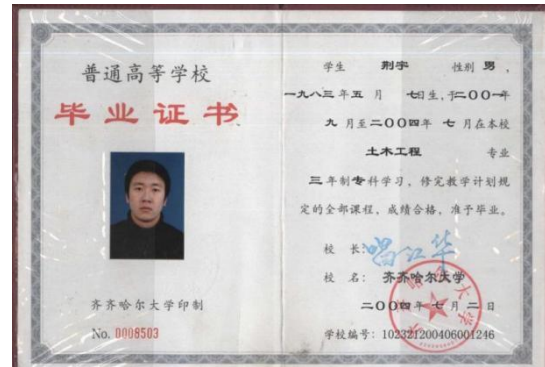 普通高等学校
毕业证书
齐齐哈尔大学印制
No. 0008503
学生 荆宇 性别 男,
一九八三年五月 七日生,于二〇〇一年
九月至二〇〇四年 七月在本校
土木工程 专业
三年制专科学习,修完教学计划规
定的全部课程,成绩合格,准予毕业。
校 长:
校 名: 齐齐哈尔大学
二〇〇四年七月二日
学校编号: 102321200406001246